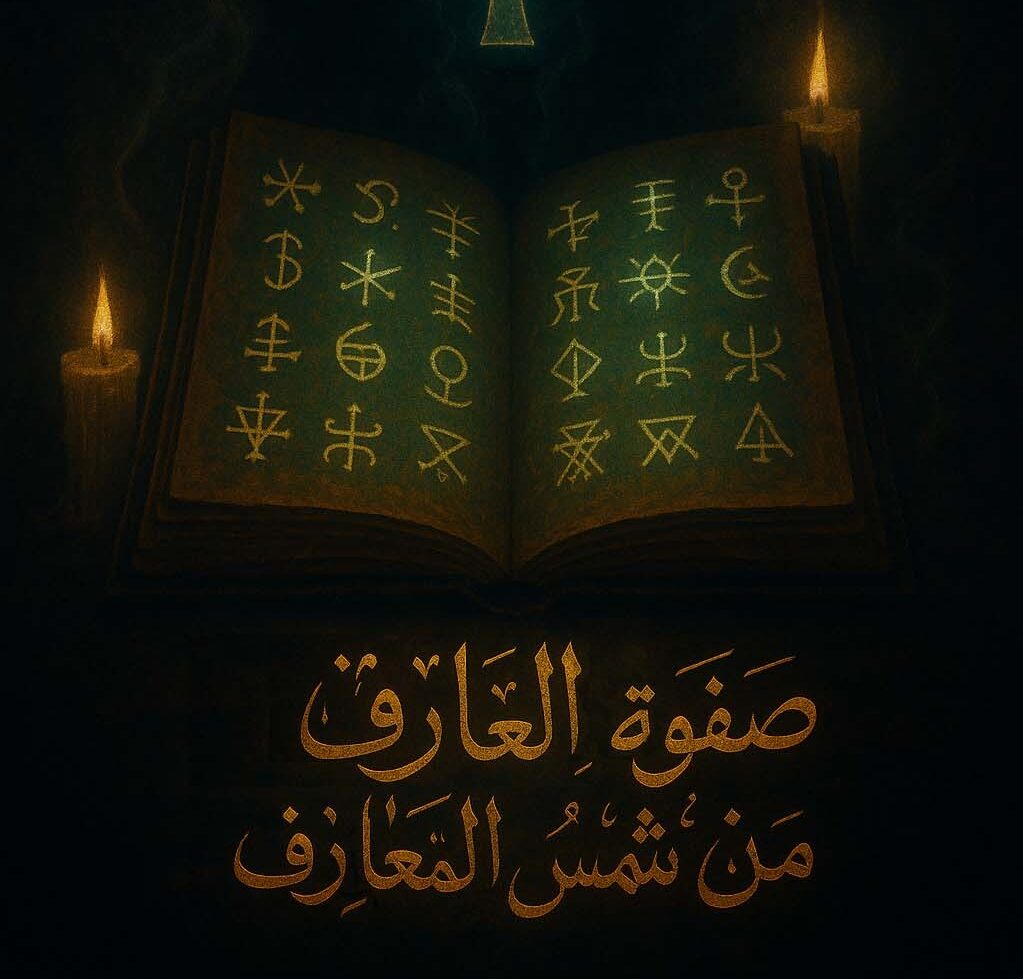 صَفَوَة العَارف
مَن شمسُ المَعارِف